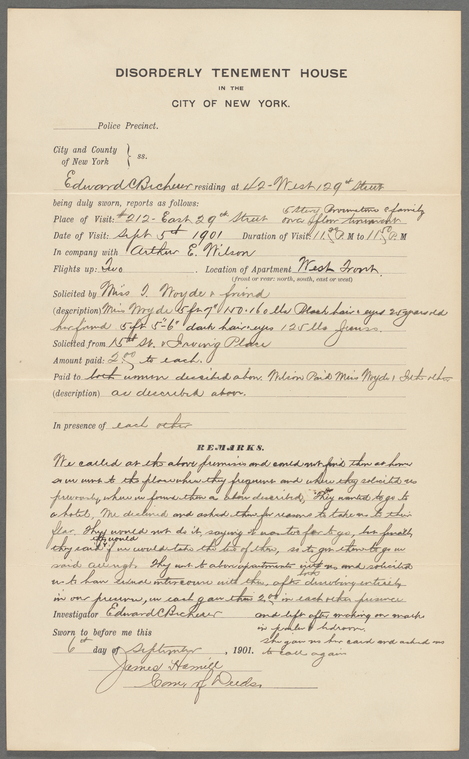 DISORDERLY TENEMENT HOUSE
IN THE
CITY OF NEW YORK.
Police Precinct.
City and County
of New York } ss.
Edward C Becherer residing at 42-West 129th Street
being duly sworn, reports as follows:
Place of Visit: #212-East 29th Street 5 Story Brownstone & family one floor tenement
Date of Visit: Sept 5th 1901 Duration of Visit: 11.20 P.M to 11.50 P.M
In company with Arthur E. Wilson
Flights up: Two Location of Apartment West Front.
(front or rear: north, south, east or west)
Solicited by Miss T. Woyde & friend
(description) Miss Woyde 5ft 7" 150-160 lbs Black hair & eyes 25 years old
her friend 5ft 5"-6" dark hair & eyes 125 lbs
Solicited from 15th St. & Irving Place
Amount paid: 2.00 to each.
Paid to both women described above. Wilson Paid Miss Woyde & I the other
(description) as described above.
In presence of each other
REMARKS.
We called at the above premises and could not find them at home
so we went to the place where they frequent and where they solicited us
previously, where we found them as above described, They wanted to go to
a hotel, We declined and asked them for reasons to take us to their
flat. They would not do it, saying it was too far to go, but finally
they said they would if we would take the two of them, so to get them to go we
said allright. They went to above apartments with us and solicited
us to have sexual intercourse with them, after disrobing entirely
in our presence, we each gave them 2.00 in each others presence
Investigator Edward C Becherer and left after making an
in parlor & bedroom
Sworn to before me this She gave us her card and asked us
6th day of September, 1901. to call again
James Hamill
Com. of Deeds.